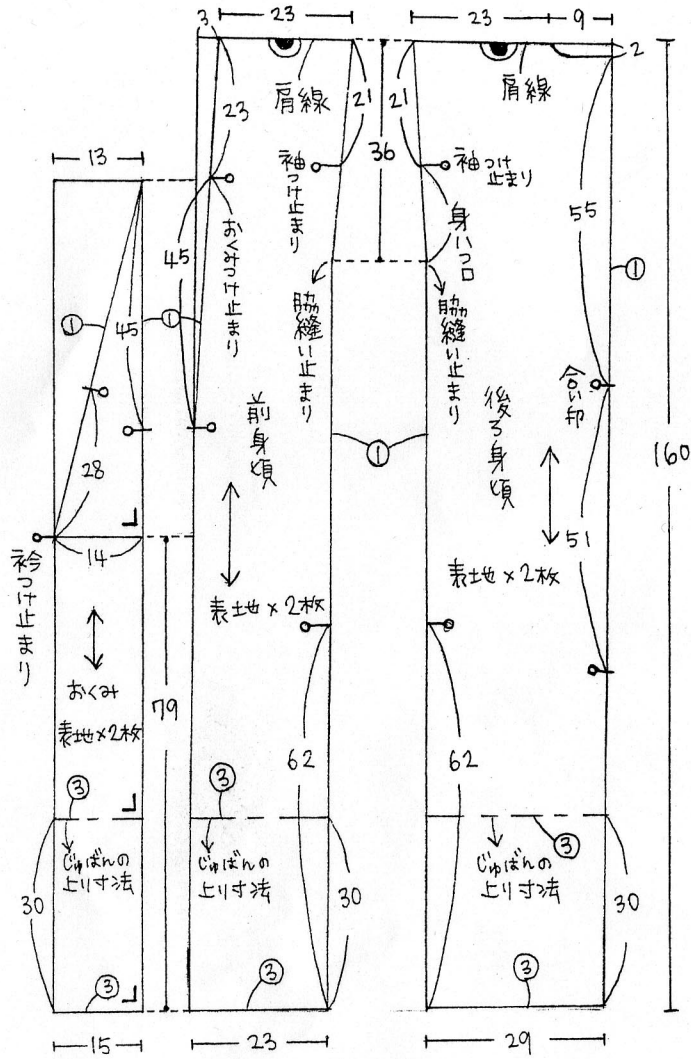 3
23
23
9
2
肩線
肩線
23
21
21
36
13
袖つけ止まり
袖つけ止まり
おくみつけ止まり
身八つ口
55
45
①
①
①
45
脇縫い止まり
脇縫い止まり
合い印
前身頃
後ろ身頃
①
160
28
14
51
衿つけ止まり
表地×2枚
表地×2枚
おくみ
表地×2枚
79
62
62
③
③
③
じゅばんの
上り寸法
じゅばんの
上り寸法
じゅばんの
上り寸法
30
30
30
③
③
③
15
23
29